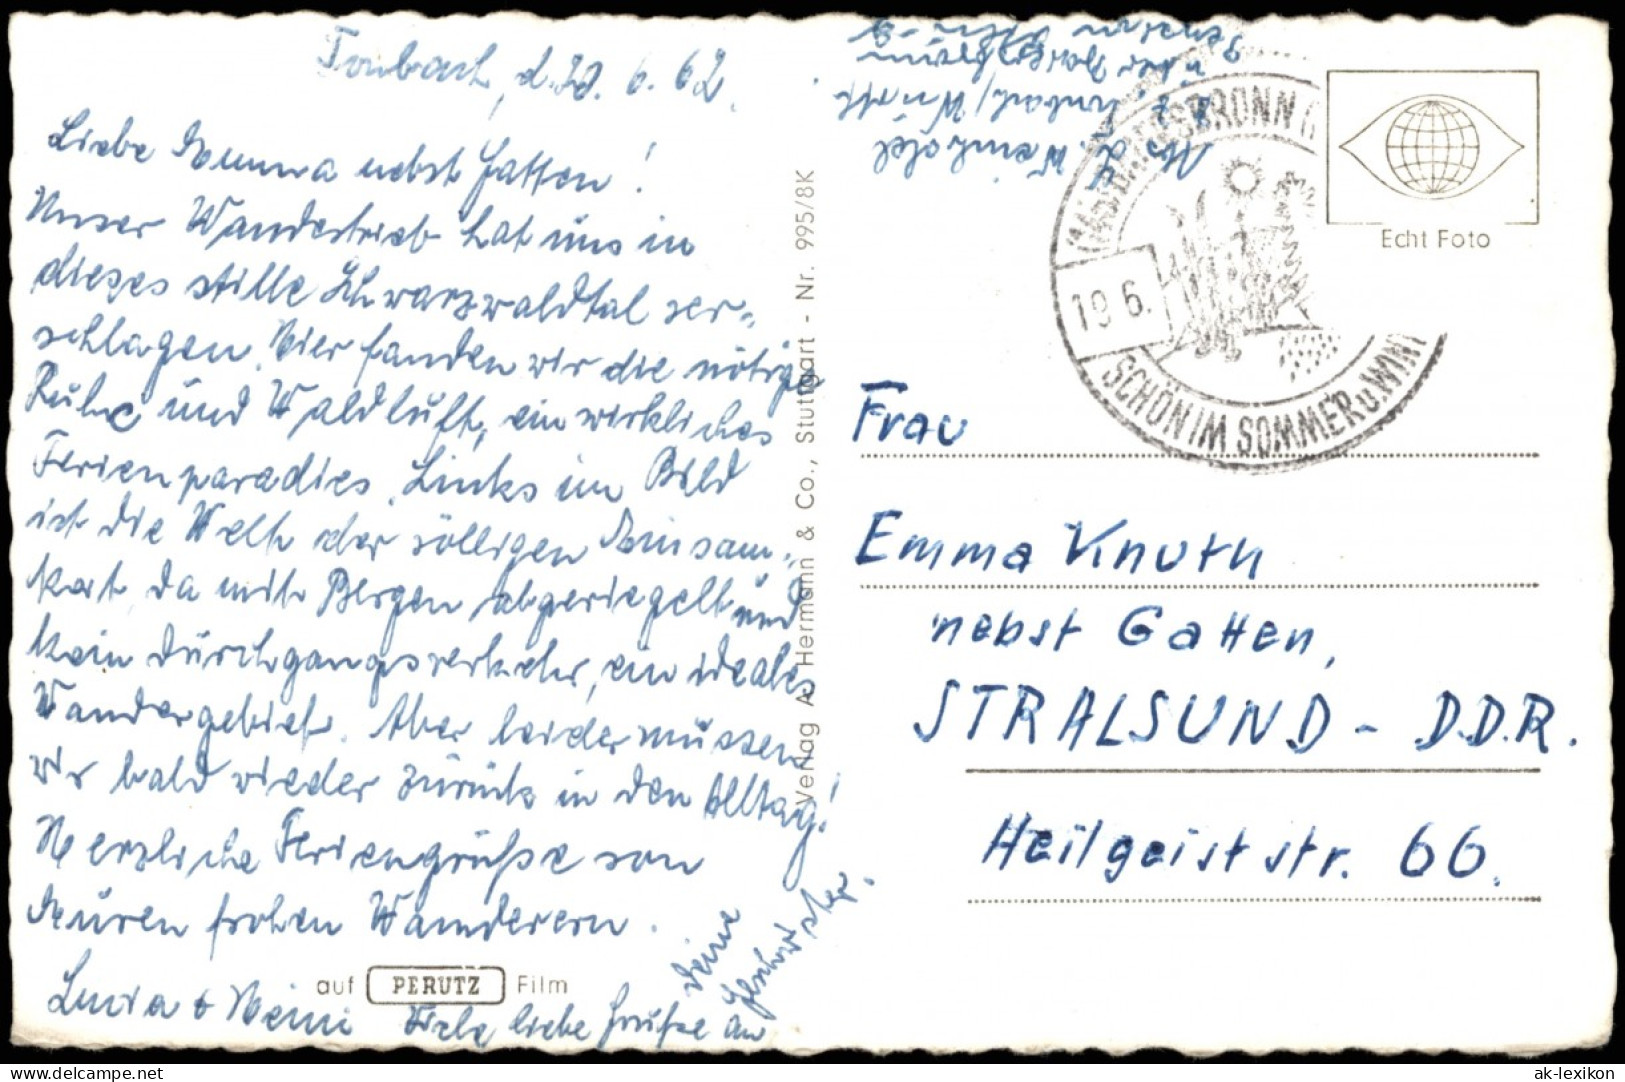 Tonbach, d. 20. 6. 62.
Liebe Emma nebst Gatten!
Unser Wandertrieb hat uns in
dieses stille Schwarzwaldtal ver-
schlagen. Hier fanden wir die nötige
Ruhe und Waldluft, ein wirkliches
Ferienparadies. Links im Bild
ist die Welt der völligen Einsam-
keit, da mit Bergen abgeriegelt und
kein Durchgangsverkehr, ein ideales
Wandergebiet. Aber leider müssen
wir bald wieder zurück in den Alltag!
Herzliche Feriengrüße von
Euren frohen Wanderern.
Lucia + Heini Viele liebe Grüße an
Deine
Geschwister.
auf PERUTZ Film
Verlag A. Hermann & Co., Stuttgart - Nr. 995/8K
Abs. d. Weinhold
z. Z. Tonbach/Württ.
Pension
BRONN
19.6.
SCHÖN IM SOMMER u. WINT
Echt Foto
Frau
Emma Knuth
nebst Gatten,
STRALSUND - D.D.R.
Heilgeiststr. 66.
delcampe.net
ak-lexikon